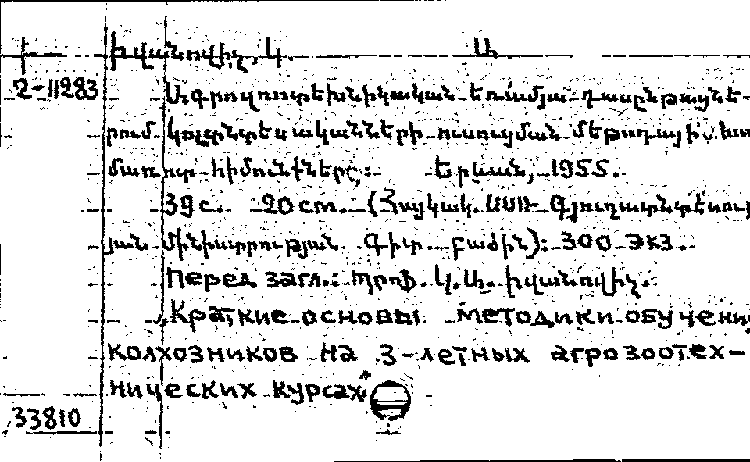 Իվանովիչ, Կ. Ա.
2-11283 Ագրոզոոտեխնիկական եռամյա դասընթացնե-
րում կոլտնտեսականների ուսուցման մեթոդայի հա-
մառոտ հիմունքները: Երևան, 1955.
39 с. 20 cm. (Հայկակ. ՍՍՌ Գյուղատնտեսու-
յան մինիստրության Գիտ. բաժին): 300 экз.
Перед загл.: Պրոֆ. Կ. Ա. Իվանովիչ.
„Краткие основы методики обучени
колхозников на 3-летных агрозоотех-
нических курсах“
33810